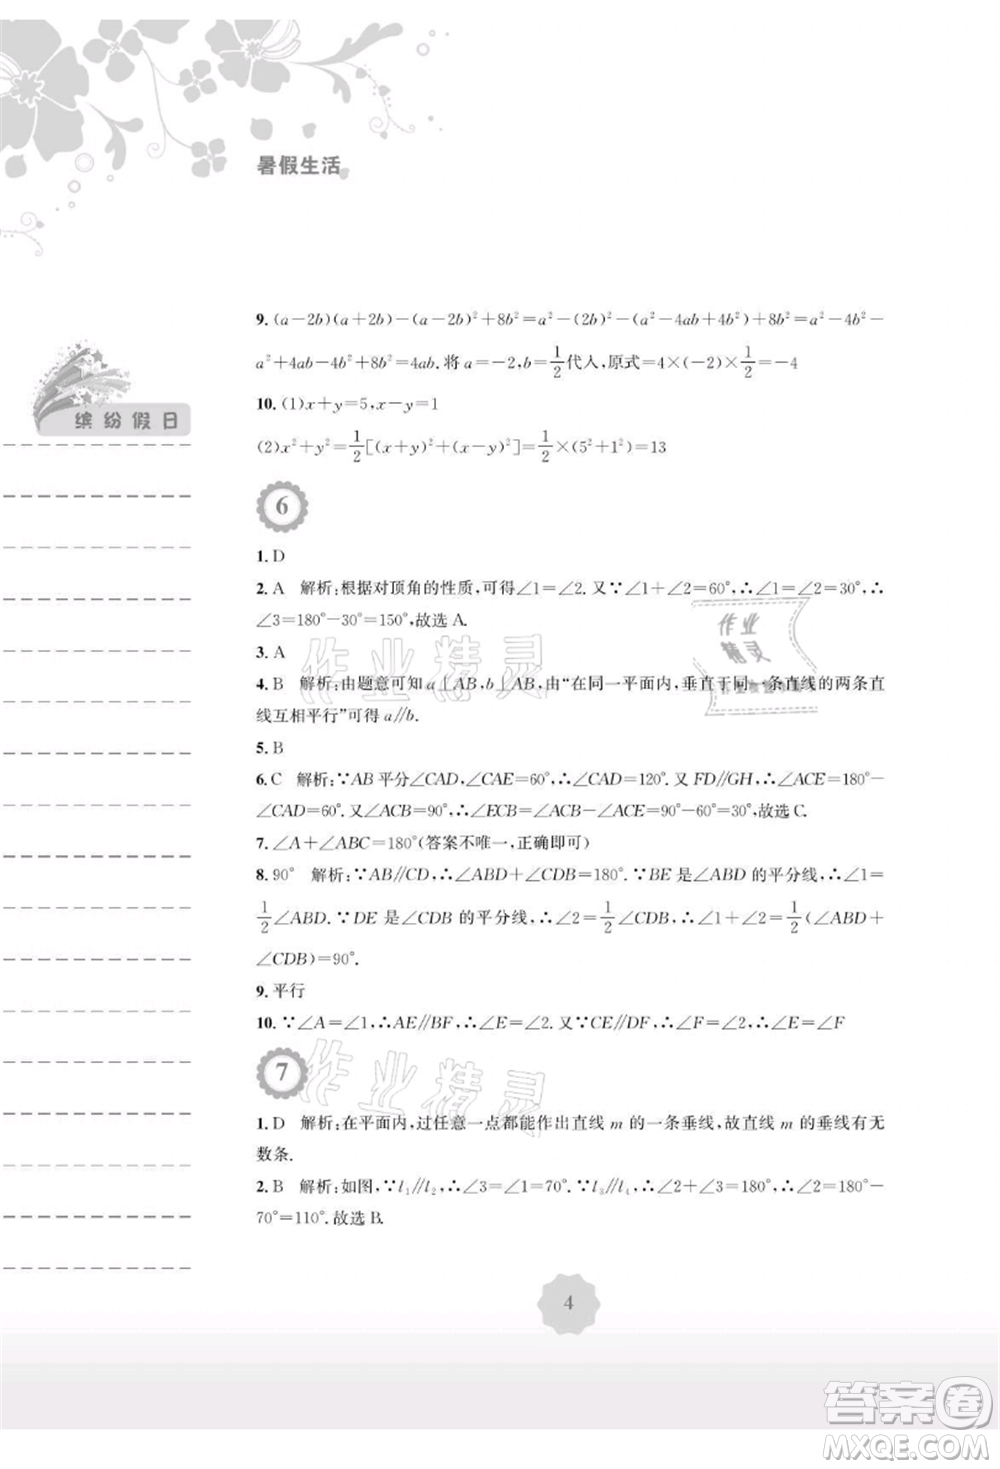 暑假生活
9. (a-2b)(a+2b)-(a-2b)²+8b²=a²-(2b)²-(a²-4ab+4b²)+8b²=a²-4b²-
a²+4ab-4b²+8b²=4ab.将a=-2,b=1/2代人,原式=4×(-2)×1/2=-4
缤纷假日
10. (1)x+y=5,x-y=1
(2)x²+y²=1/2[(x+y)²+(x-y)²]=1/2×(5²+1²)=13
6
1. D
2. A 解析:根据对顶角的性质,可得∠1=∠2.又∵∠1+∠2=60°,∴∠1=∠2=30°,∴
∠3=180°-30°=150°,故选A.
3. A
4. B 解析:由题意可知a⊥AB,b⊥AB,由“在同一平面内,垂直于同一条直线的两条直
线互相平行”可得a∥b.
5. B
6. C 解析:∵AB平分∠CAD,∠CAE=60°,∴∠CAD=120°.又FD∥GH,∴∠ACE=180°-
∠CAD=60°.又∠ACB=90°,∴∠ECB=∠ACB-∠ACE=90°-60°=30°,故选C.
7. ∠A+∠ABC=180°(答案不唯一,正确即可)
8. 90° 解析:∵AB∥CD,∴∠ABD+∠CDB=180°.∵BE是∠ABD的平分线,∴∠1=
1/2∠ABD.∵DE是∠CDB的平分线,∴∠2=1/2∠CDB,∴∠1+∠2=1/2(∠ABD+
∠CDB)=90°.
9. 平行
10. ∵∠A=∠1,∴AE∥BF,∴∠E=∠2.又∵CE∥DF,∴∠F=∠2,∴∠E=∠F
7
1. D 解析:在平面内,过任意一点都能作出直线m的一条垂线,故直线m的垂线有无
数条.
2. B 解析:如图,∵l₁∥l₂,∴∠3=∠1=70°.∵l₃∥l₄,∴∠2+∠3=180°,∴∠2=180°-
70°=110°.故选B.
4
作业精灵
作业
精灵
作业精灵
答案卷
MXQE.COM